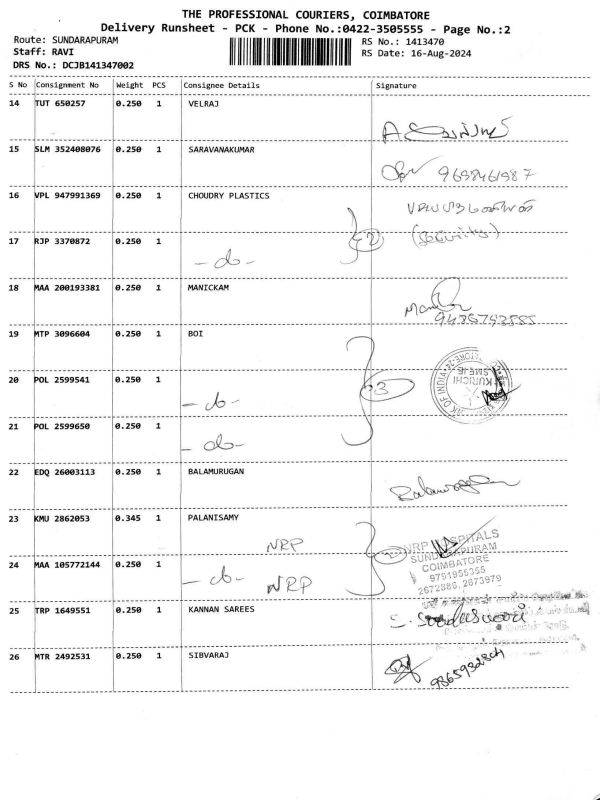 THE PROFESSIONAL COURIERS, COIMBATORE
Delivery Runsheet - PCK - Phone No.:0422-3505555 - Page No.:2
Route: SUNDARAPURAM
RS No.: 1413470
Staff: RAVI
RS Date: 16-Aug-2024
DRS No.: DCJB141347002
S No Consignment No Weight PCS Consignee Details Signature
14 TUT 650257 0.250 1 VELRAJ
15 SLM 352408076 0.250 1 SARAVANAKUMAR
9698461987
16 VPL 947991369 0.250 1 CHOUDRY PLASTICS
2
(Security)
17 RJP 3370872 0.250 1
- do -
18 MAA 200193381 0.250 1 MANICKAM
19 MTP 3096604 0.250 1 BOI
20 POL 2599541 0.250 1
- do -
3
KURICHI
21 POL 2599650 0.250 1
- do -
22 EDQ 26003113 0.250 1 BALAMURUGAN
Balamurugan
23 KMU 2862053 0.345 1 PALANISAMY
NRP
NRP HOSPITALS
SUNDARAPURAM
COIMBATORE
9791955355
2672880, 2673979
24 MAA 105772144 0.250 1
- do - NRP
25 TRP 1649551 0.250 1 KANNAN SAREES
26 MTR 2492531 0.250 1 SIBVARAJ